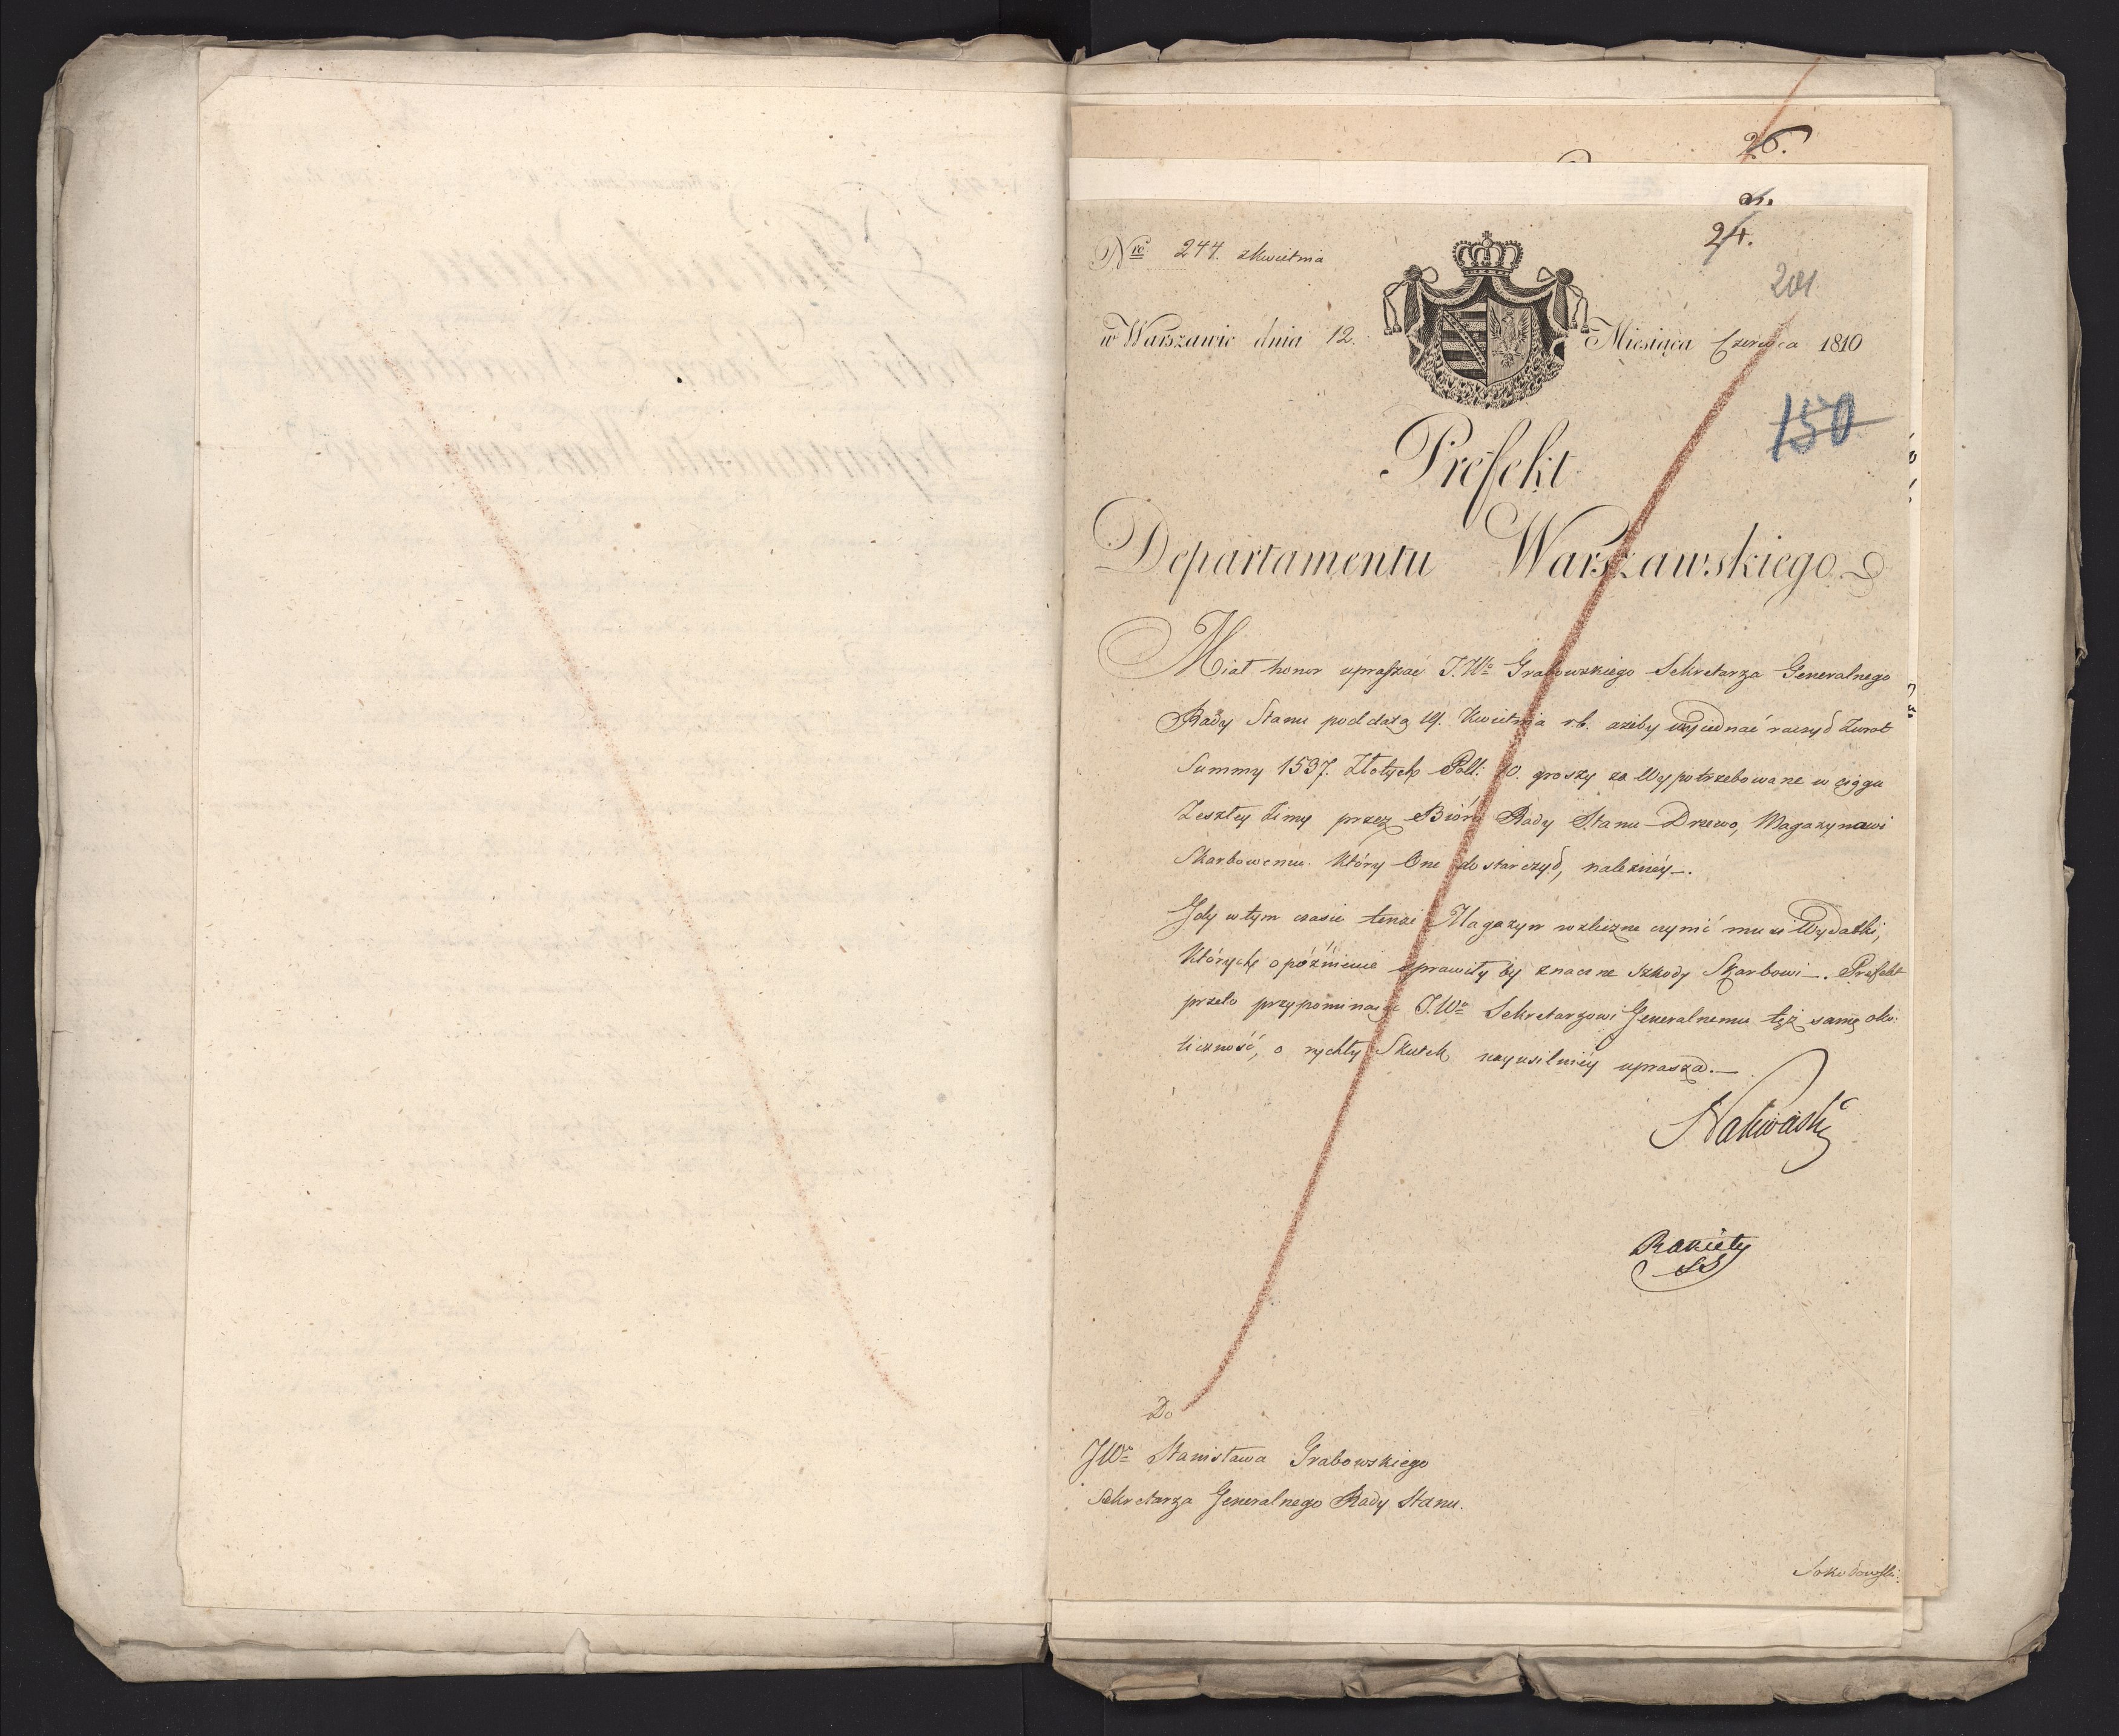 26.
24.
Nro 244. z kwietnia
201
w Warszawie dnia 12. Miesiąca Czerwca 1810
150
Prefekt
Departamentu Warszawskiego
Miał honor upraszać J.Wo Grabowskiego Sekretarza Generalnego
Rady Stanu pod datą 19. Kwietnia r.b. ażeby wyjednać raczył Zwrot
Summy 1537. Złotych Pol: 10. groszy za Wypotrzebowane w ciągu
Zeszłey Zimy przez Bióro Rady Stanu Drzewo, Magazynowi
Skarbowemu. Który One dostarczył, należnéy.
Gdy w tym czasie tenże Magazyn rozliczne czynić musi Wydatki,
Których opóźnienie sprawiły by znaczne szkody Skarbowi. Prefekt
przeto przypominając J.Wo Sekretarzowi Generalnemu tęż samę oko:
liczność, o rychły Skutek nayusilniéy uprasza.
Nakwaski
Rakiety
SS
Do
JWo Stanisława Grabowskiego
Sekretarza Generalnego Rady Stanu.
Sokołowski.